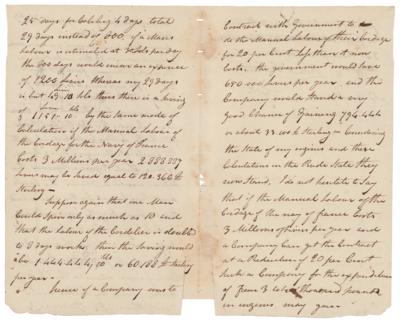 25 days for Cobiling 4 days total
29 days instead of 300. if a Mans
labour is estimated at per day
the 300 days would incur an expence
of 1200 Livres Whereas my 29 days
is but 43-10 thus there is a Saving
of 1151-10 by the same mode of
Calculation if the Manual Labour of
the Cordage for the Navy of France
Costs 3 Millions per year 2 888 889
Livres may be Saved equal to 120.360 £
Sterling -
Suppose again one Man
Could Spin only as much as 10 and
that the labour of the Cordelier is doubled
to 8 days works, then the Saving would
be 1.444.444 or 60188 £ Sterling
per year -
hence if a Company were to
Contract with Government to
do the Manual Labour of their Cordage
for 20 per Cent less than it now
Costs. the government would Save
600.000 Livres per year and the
Company would Stand a very
Good Chance of Gaining 794.444
or about 33.100 £ Sterling - Considering
the State of my engines and these
Calculations in the Rude State they
now Stand. I do not hesitate to Say
that if the Manual Labour of the
Cordage of the navy of france Costs
3 Millions of livres per year and
a Company Can get the Contract
at a Reduction of 20 per Cent
Such a Company for the expenditure
of from 3 to thousand pounds
in engines may gain